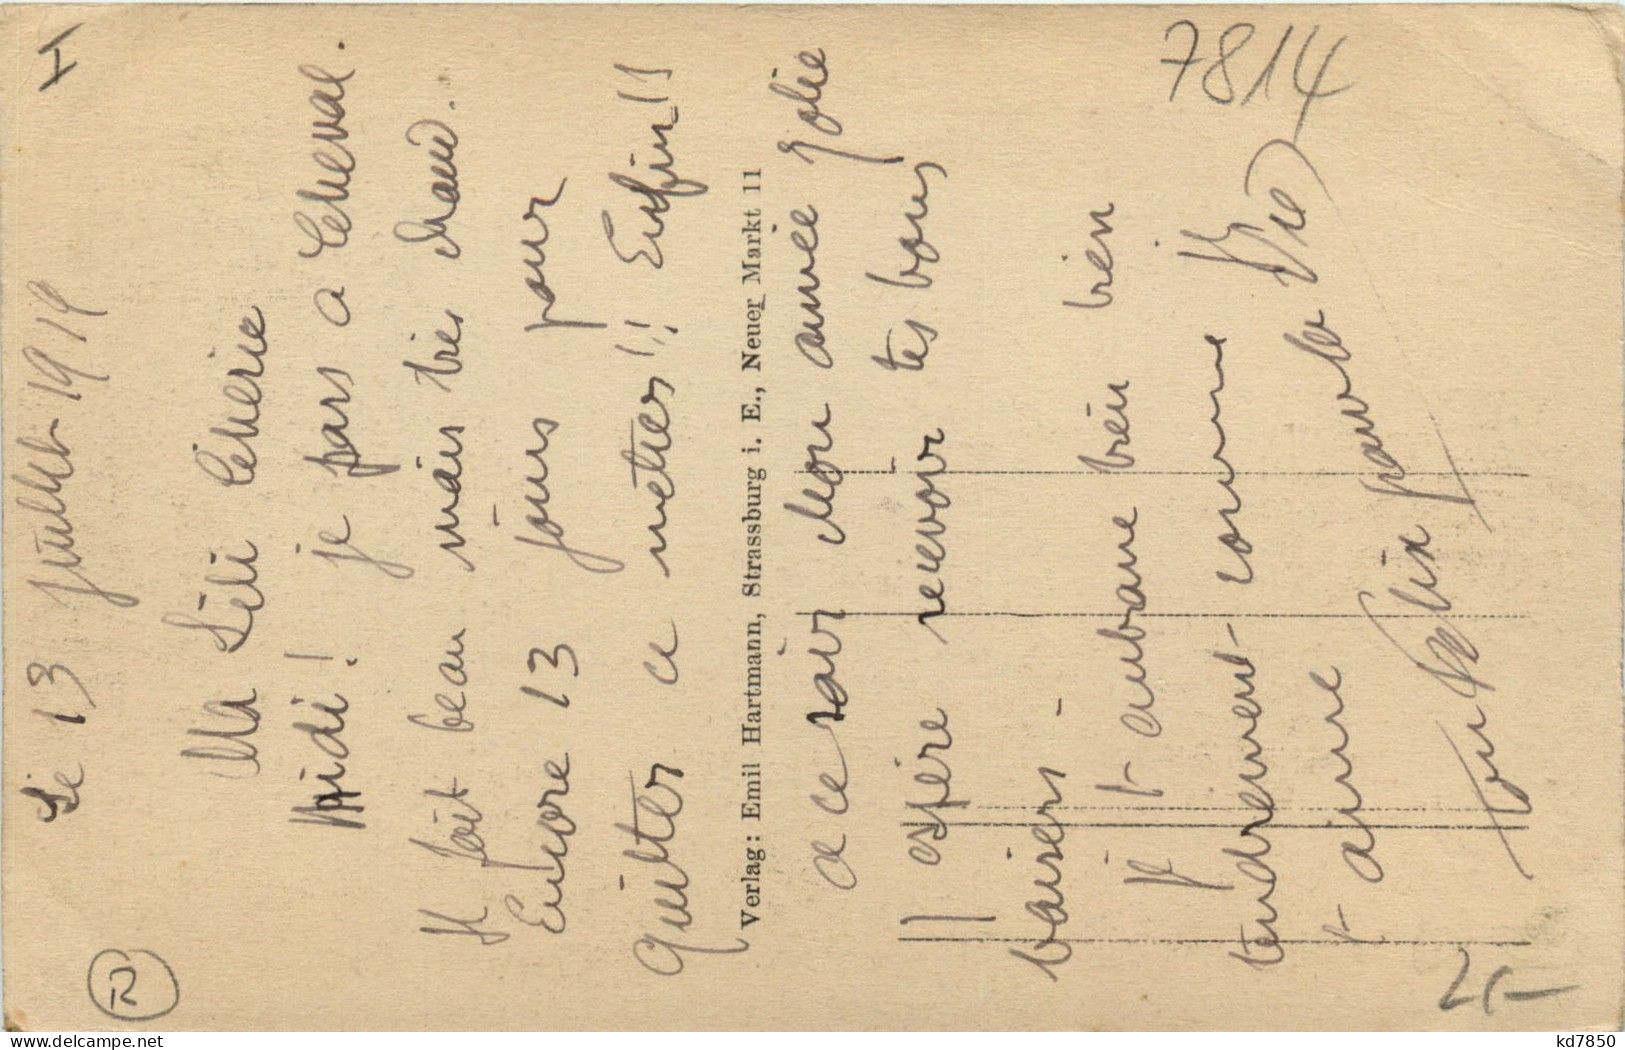 Le 13 juillet 1919
Ma Lili Cherie
Midi! je pars a Cheval.
Il fait beau mais tres chaud.
Encore 13 jours pour
quitter ce metier!! Enfin!!
Verlag: Emil Hartmann, Strassburg i. E., Neuer Markt 11
a ce soir Mon aimée jolie
J'espère recevoir tes bons
baisers -
je t'embrasse bien bien
tendrement comme
t'aime
ton pour la Vie
I
7814
2,-
kd7850